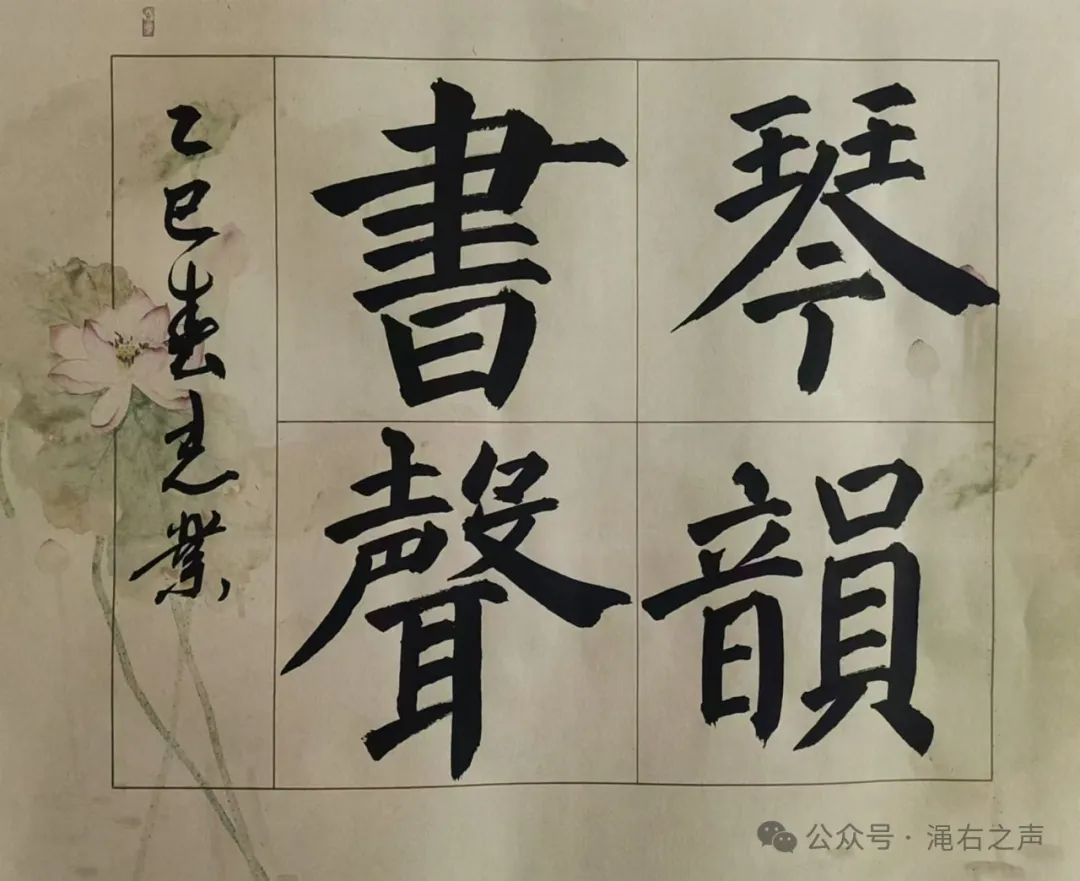 琴韻
書聲
乙巳春業
公众号 · 渑右之声